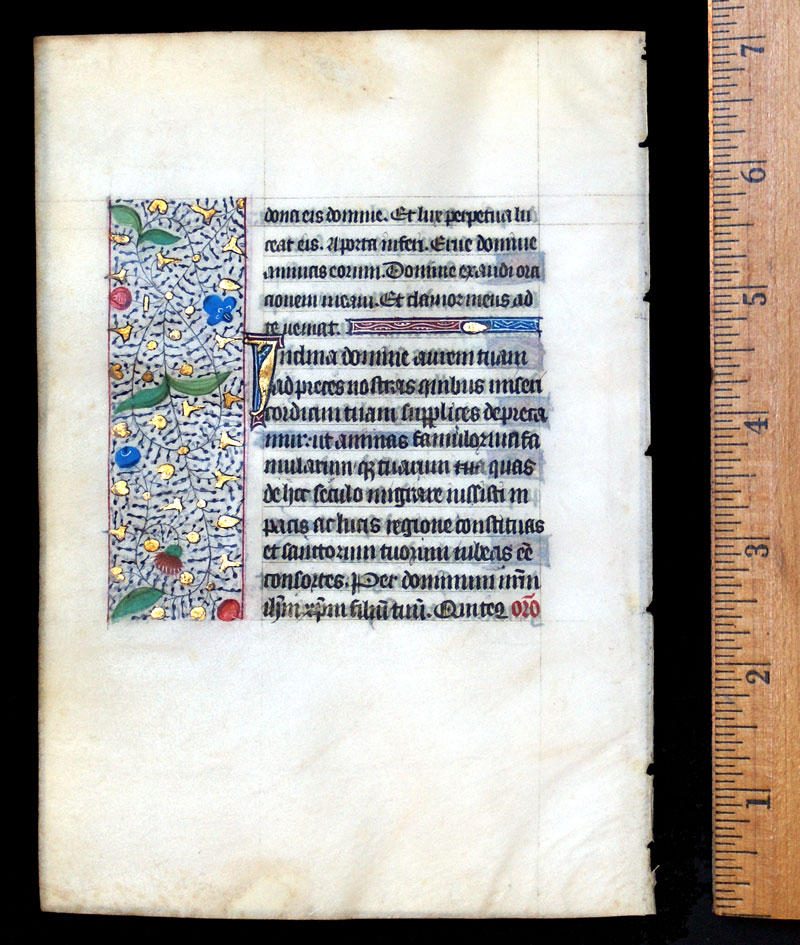 dona eis domine. Et lux perpetua lu
ceat eis. A porta inferi. Erue domine
animas eorum. Domine exaudi ora
cionem meam. Et clamor meus ad
te ueniat.
Inclina domine aurem tuam
ad preces nostras quibus miseri
cordiam tuam supplices depreca
mur: ut animas famulorum fa
mularum qz tuarum tua quas
de hoc seculo migrare iussisti in
pacis ac lucis regione constituas
et sanctorum tuorum iubeas eē
consortes. Per dominum nr̄m
ih̄m xp̄m filiū tuū. Qui tecū or̄o
7
6
5
4
3
2
1